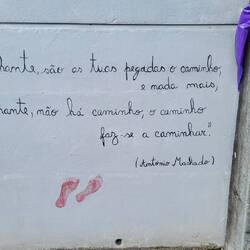 hante, são as tuas pegadas o caminho,
e nada mais,
hante, não há caminho, o caminho
faz-se a caminhar."
(António Machado)